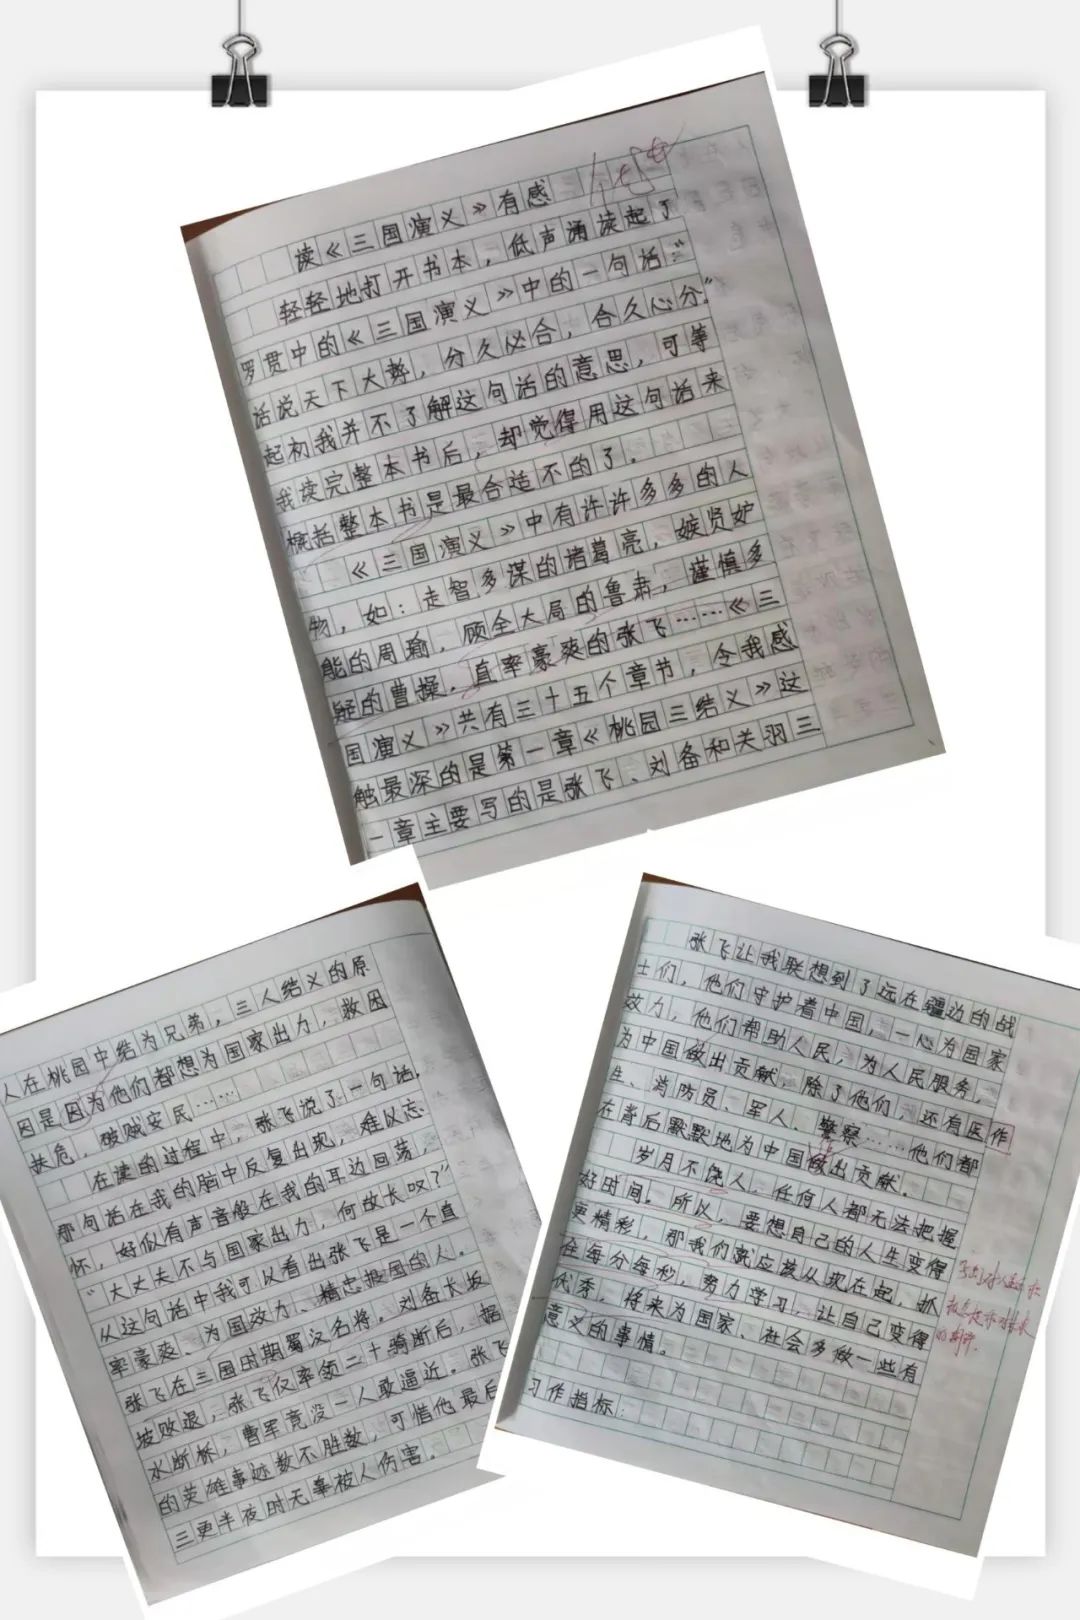 读《三国演义》有感
轻轻地打开书本，低声诵读起了
罗贯中的《三国演义》中的一句话：“
话说天下大势，分久必合，合久必分。”
起初我并不了解这句话的意思，可等
我读完整本书后，却觉得用这句话来
概括整本书是最合适不的了。
《三国演义》中有许许多多的人
物，如：走智多谋的诸葛亮，嫉贤妒
能的周瑜，顾全大局的鲁肃，谨慎多
疑的曹操，直率豪爽的张飞……《三
国演义》共有三十五个章节，令我感
触最深的是第一章《桃园三结义》这
一章主要写的是张飞、刘备和关羽三
人在桃园中结为兄弟，三人结义的原
因是因为他们都想为国家出力，救困
扶危，破贼安民……
在读的过程中，张飞说了一句话，
那句话在我的脑中反复出现，难以忘
怀，好似有声音般在我的耳边回荡，
“大丈夫不与国家出力，何故长叹？”
从这句话中我可以看出张飞是一个直
率豪爽、为国效力、精忠报国的人。
张飞在三国时期蜀汉名将。刘备长坂
坡败退，张飞仅率领二十骑断后，据
水断桥，曹军竟没一人敢逼近。张飞
的英雄事迹数不胜数，可惜他最后
三更半夜时无辜被人伤害。
张飞让我联想到了远在疆边的战
士们，他们守护着中国，一心为国家
效力，他们帮助人民，为人民服务，
为中国做出贡献，除了他们，还有医作
生、消防员、军人、警察……他们都
在背后默默地为中国做出贡献。
岁月不饶人，任何人都无法把握
好时间。所以，要想自己的人生变得
更精彩，那我们就应该从现在起，抓
住每分每秒，努力学习，让自己变得
优秀，将来为国家、社会多做一些有
意义的事情。
习作指标：